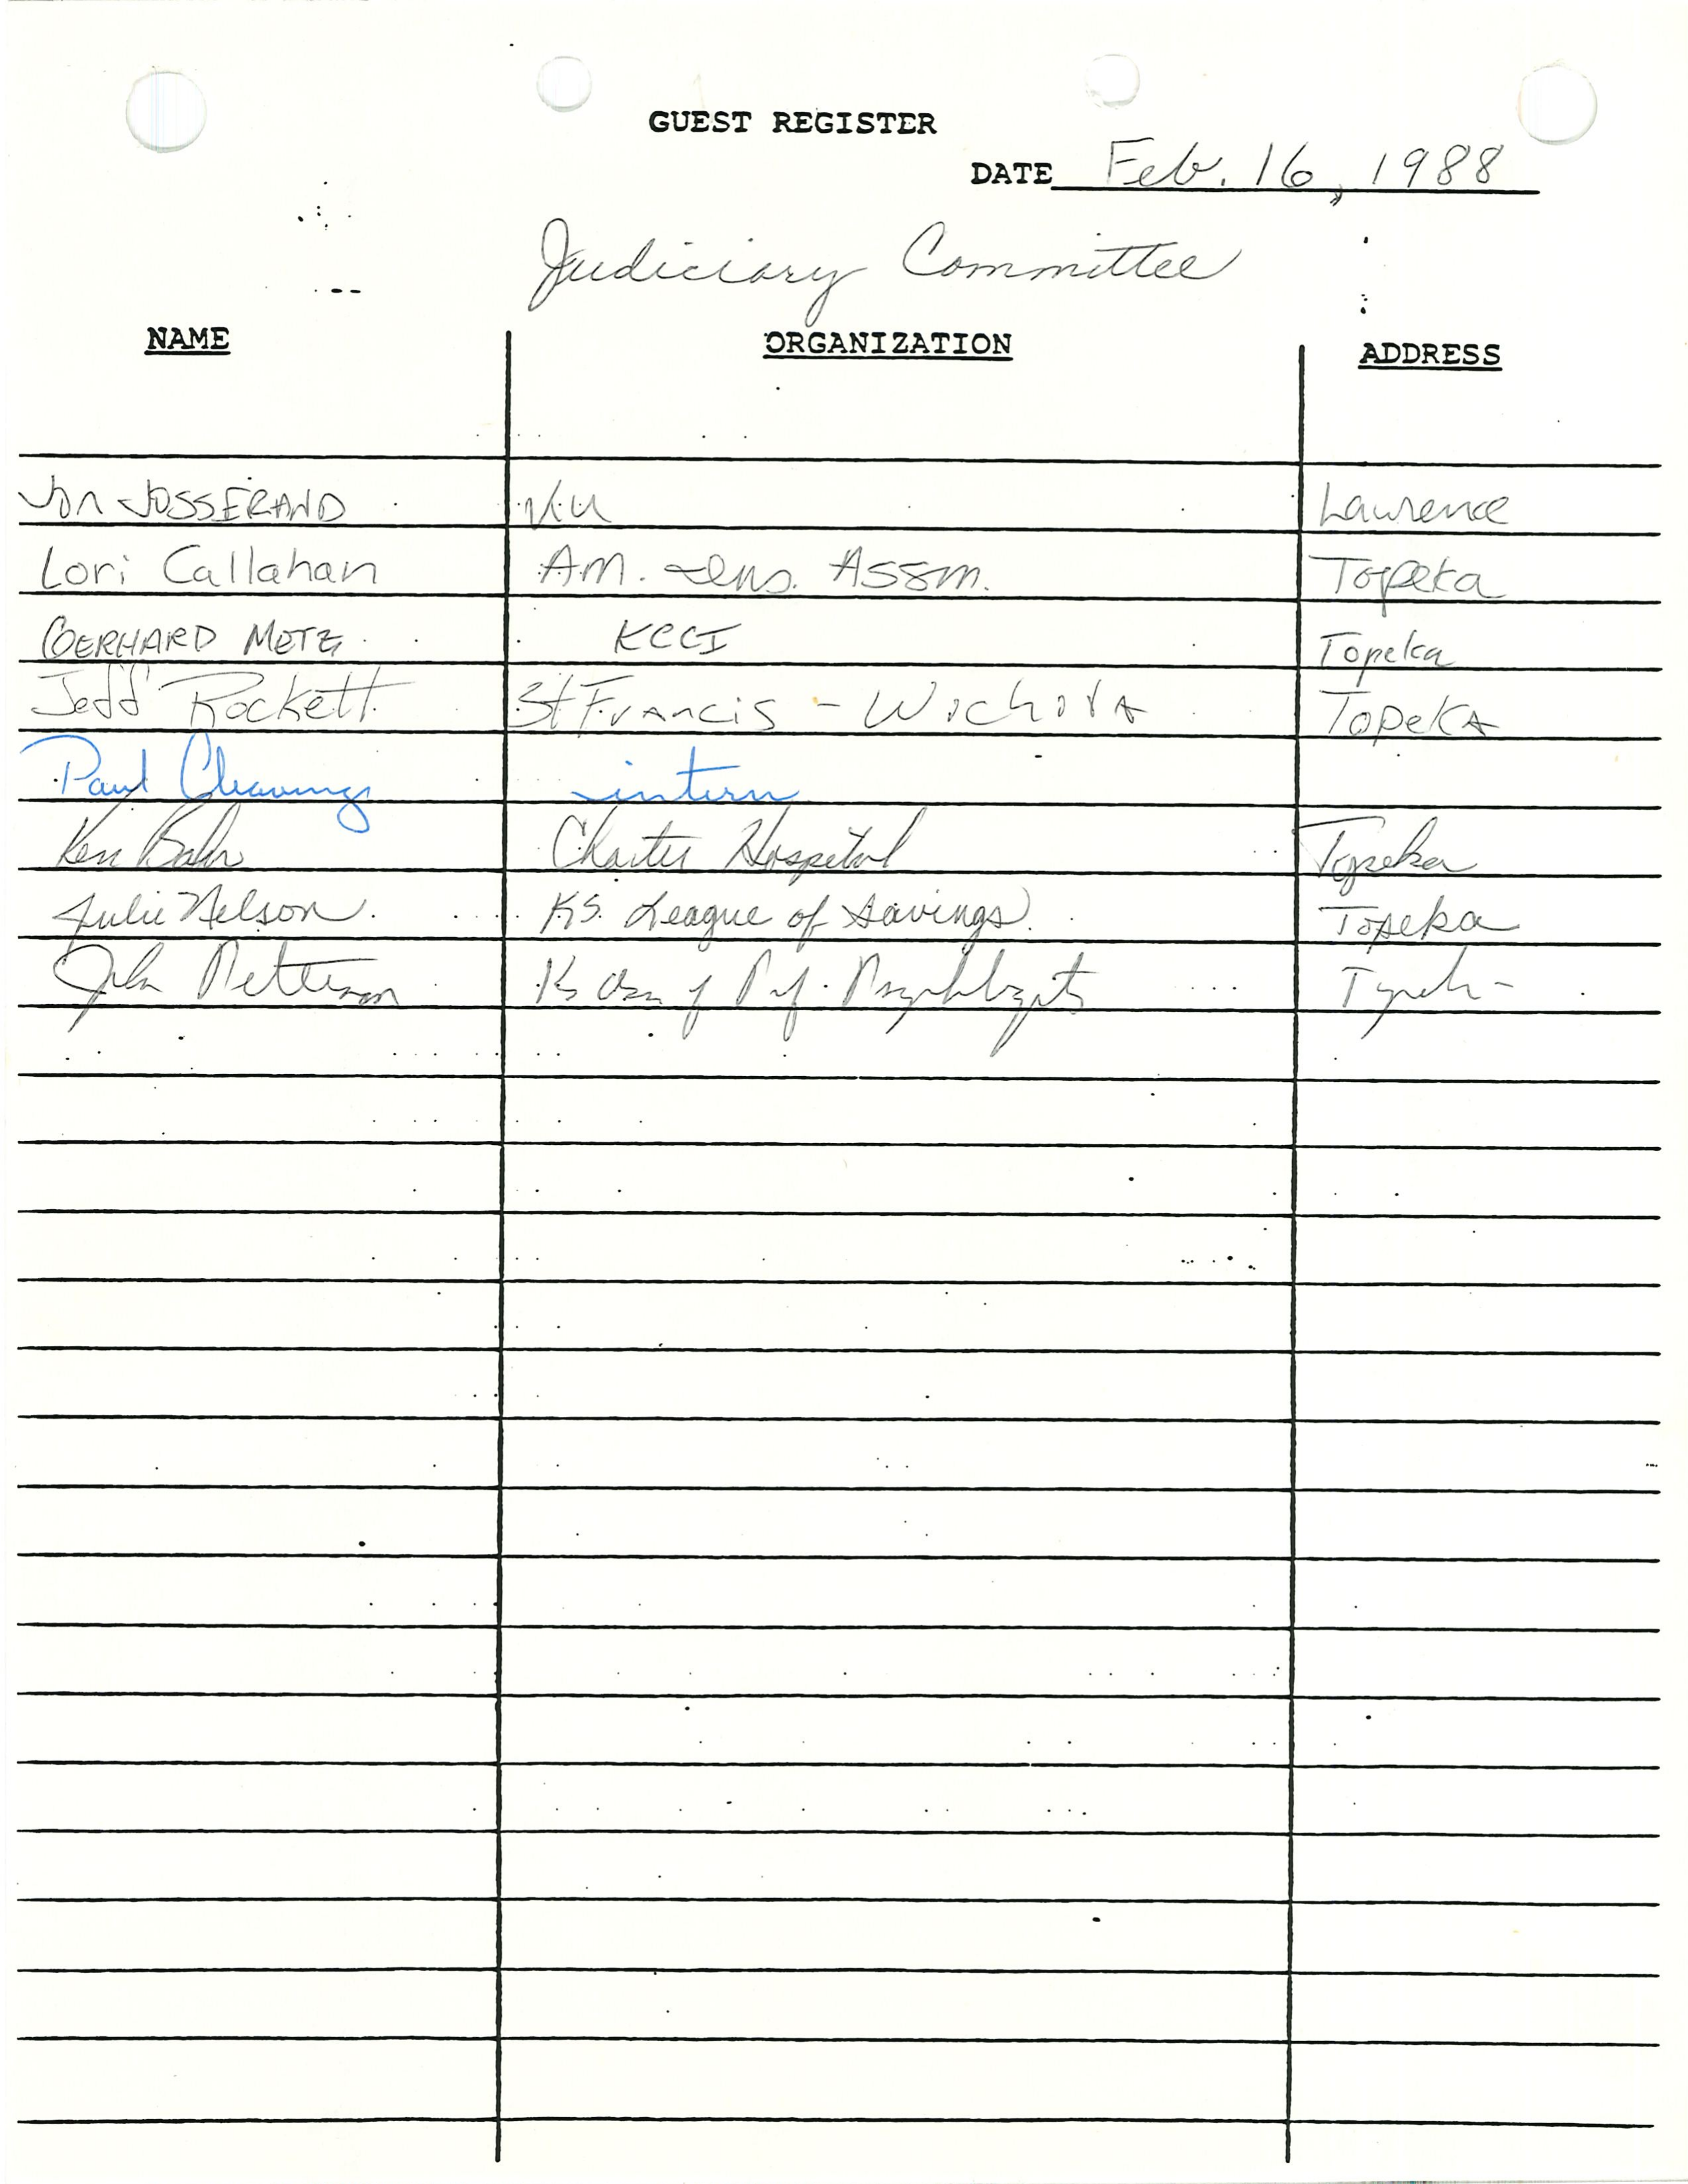 GUEST REGISTER
DATE Feb. 16, 1988
Judiciary Committee
NAME ORGANIZATION ADDRESS
Jon JOSSERAND KU Lawrence
Lori Callahan Am. Ins. Assm. Topeka
GERHARD METZ KCCI Topeka
Jeff Rockett St Francis - Wichita Topeka
Paul intern
Ken Charter Hospital Topeka
Julie Nelson KS. League of Savings Topeka
John Ks